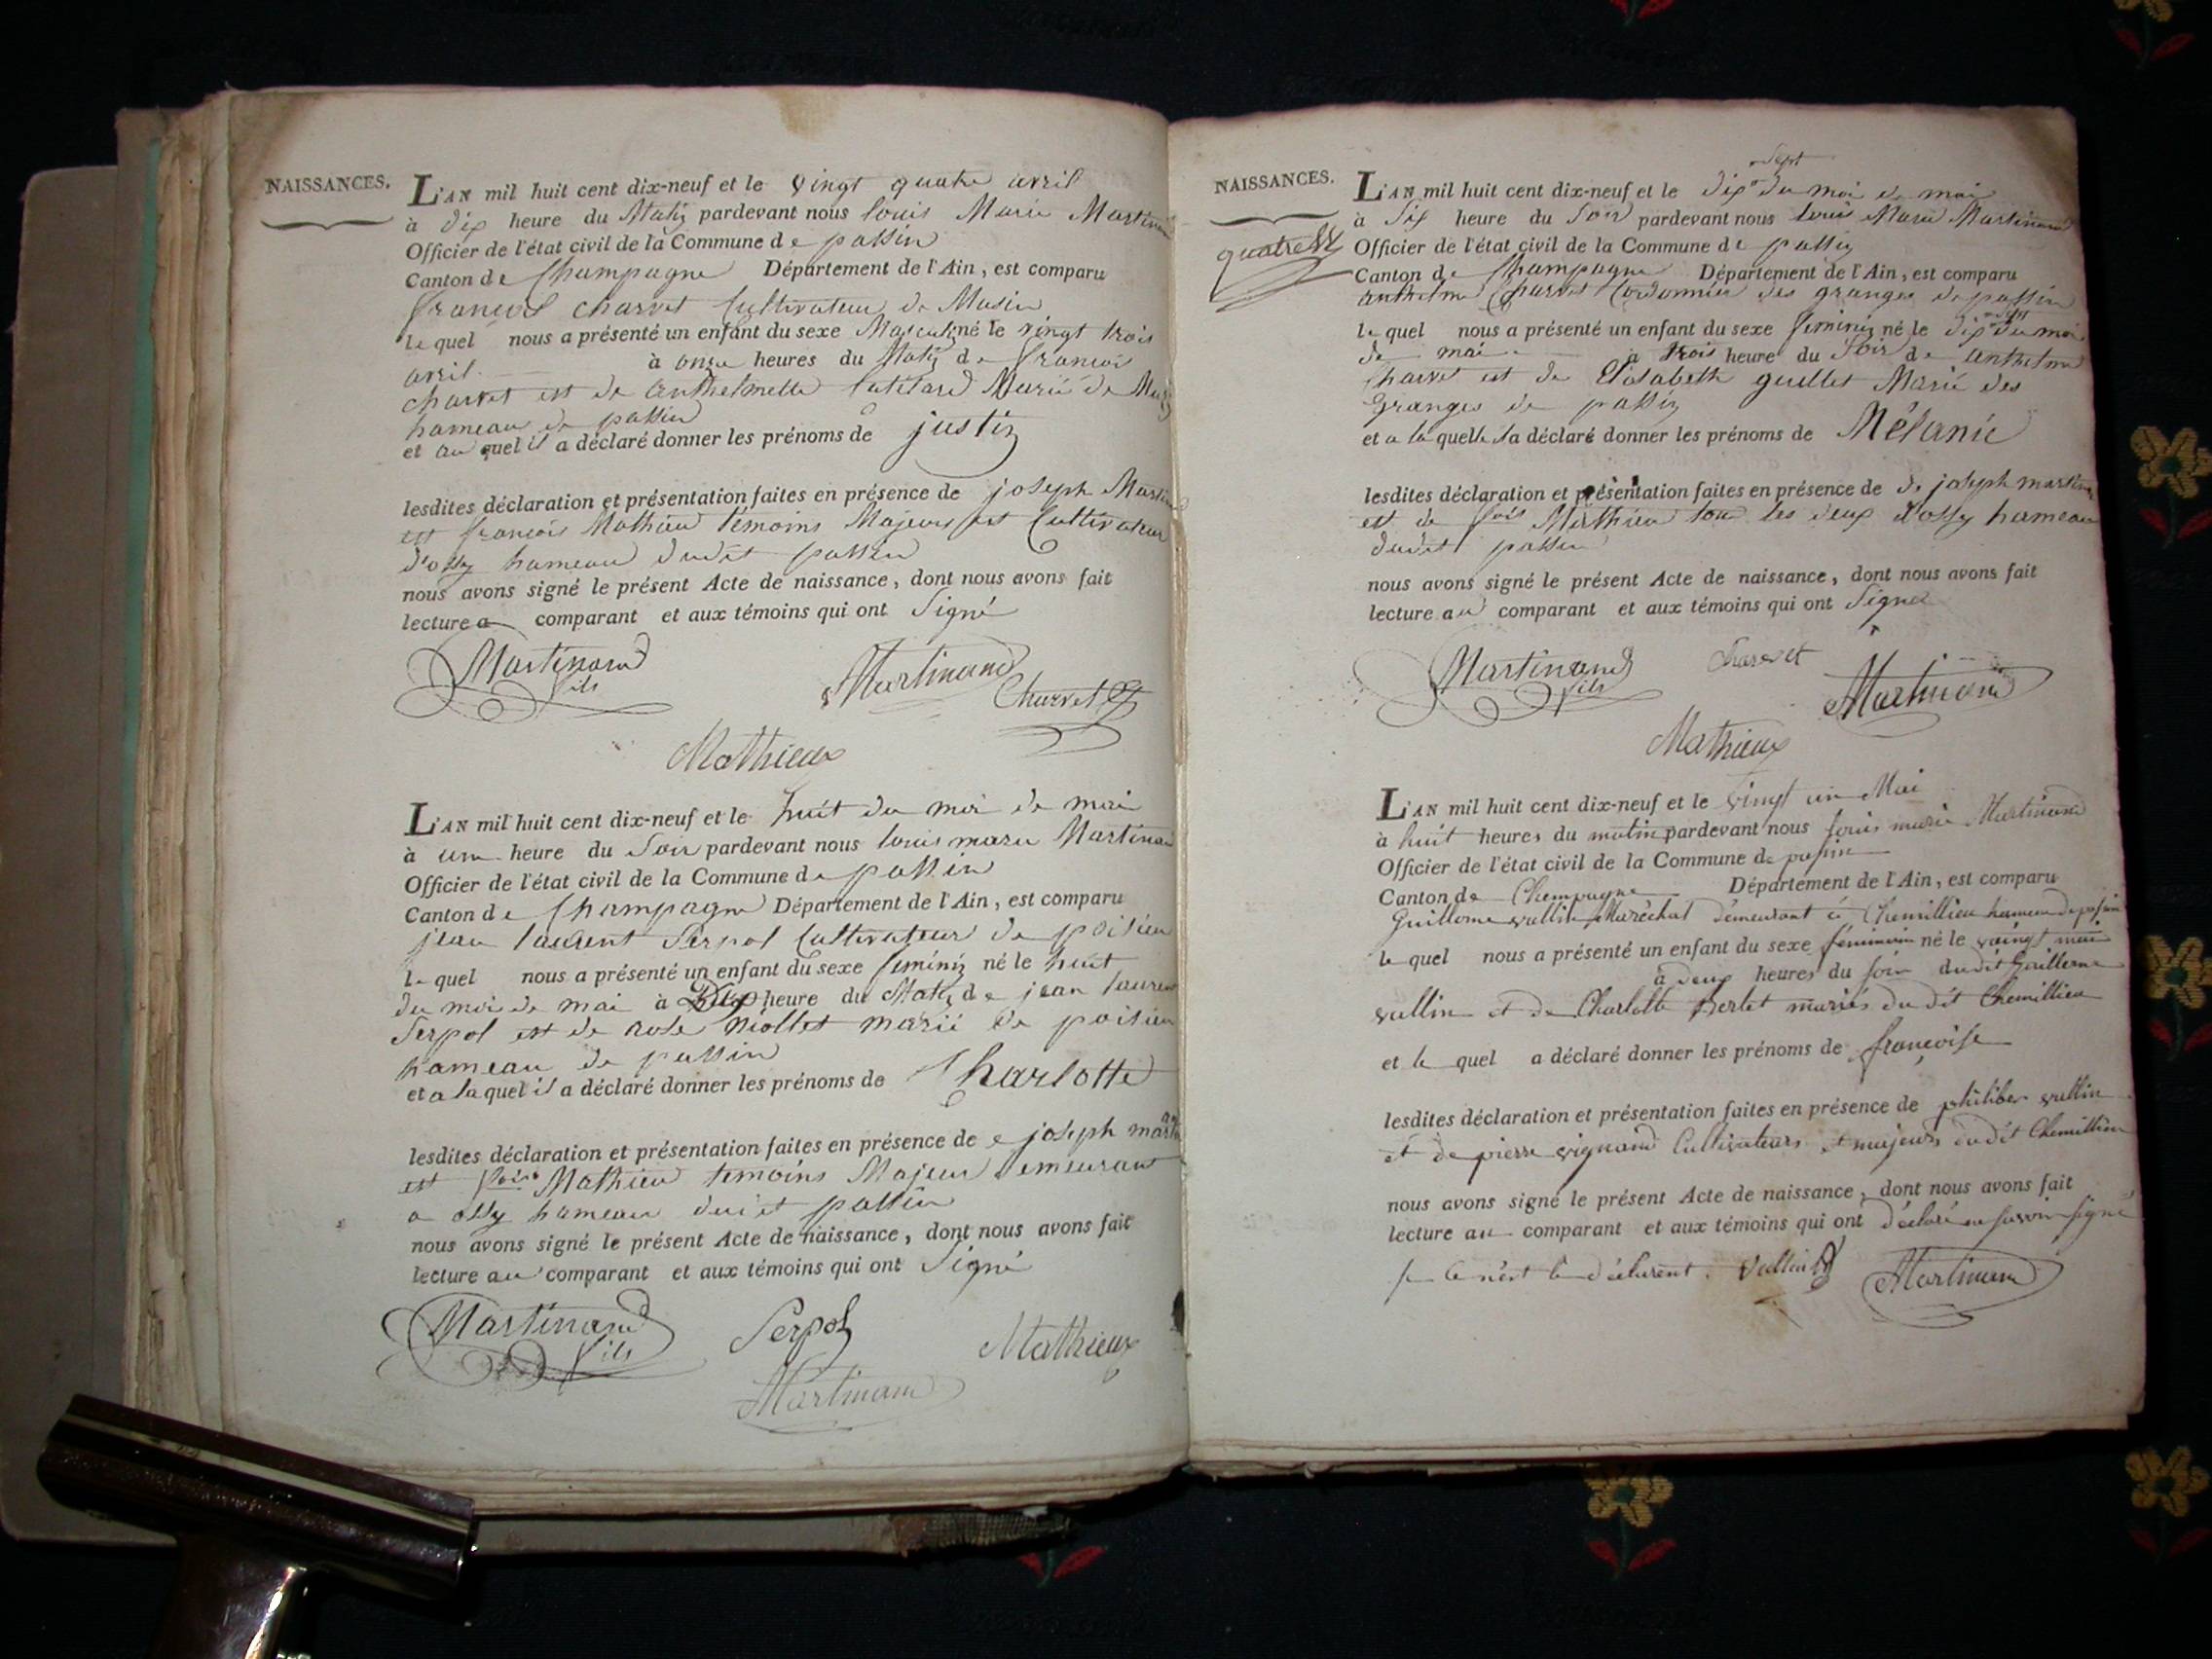 NAISSANCES.
L'AN mil huit cent dix-neuf et le vingt quatre avril
à dix heure du Matin pardevant nous louis Marie Martinand
Officier de l'état civil de la Commune de passin
Canton de Champagne Département de l'Ain, est comparu
francois charvet Cultivateur de Musin
le quel nous a présenté un enfant du sexe Masculin né le vingt trois
avril à onze heures du Matin de francois
charvet est de anthelmette Marié de
hameau de passin
et au quel il a déclaré donner les prénoms de justin
lesdites déclaration et présentation faites en présence de joseph Martinand
est francois Mathieu témoins Majeurs est Cultivateur
d'ossy hameau dudit passin
nous avons signé le présent Acte de naissance, dont nous avons fait
lecture a comparant et aux témoins qui ont Signé
Martinand fils
Martinand
Charvet
Mathieux
L'AN mil huit cent dix-neuf et le huit du moi de mai
à une heure du Soir pardevant nous louis marie Martinand
Officier de l'état civil de la Commune de passin
Canton de Champagne Département de l'Ain, est comparu
jean laurent Serpol Cultivateur de poisieu
le quel nous a présenté un enfant du sexe feminin né le huit
du moi de mai à Dix heure du Matin de jean laurent
Serpol est de rose Niollet marié de poisieu
hameau de passin
et a la quel il a déclaré donner les prénoms de Charlotte
lesdites déclaration et présentation faites en présence de joseph martinand
est fois Mathieu temoins Majeur demeurant
a ossy hameau dudit passin
nous avons signé le présent Acte de naissance, dont nous avons fait
lecture au comparant et aux témoins qui ont Signé
Martinand fils
Serpol
Mathieux
Martinand
NAISSANCES.
quatre
L'AN mil huit cent dix-neuf et le dix sept du moi de mai
à Six heure du Soir pardevant nous louis Marie Martinand
Officier de l'état civil de la Commune de passin
Canton de Champagne Département de l'Ain, est comparu
anthelme Charvet Cordonnier des granges de passin
le quel nous a présenté un enfant du sexe feminin né le dix sept du moi
de mai à trois heure du Soir de anthelme
Charvet est de Elisabette guillet Marié des
granges de passin
et a la quelle il a déclaré donner les prénoms de Mélanie
lesdites déclaration et présentation faites en présence de de joseph martinand
est de fois Mathieu tous les deux d'ossy hameau
dudit passin
nous avons signé le présent Acte de naissance, dont nous avons fait
lecture au comparant et aux témoins qui ont Signé
Martinand fils
Charvet
Martinand
Mathieux
L'AN mil huit cent dix-neuf et le vingt un Mai
à huit heures du matin pardevant nous louis marie Martinand
Officier de l'état civil de la Commune de passin
Canton de Champagne Département de l'Ain, est comparu
Guillome vullin Maréchal demeurant à Chemillieu hameau de passin
le quel nous a présenté un enfant du sexe féminin né le vingt mai
à deux heures du soir dudit Guillome
vullin et de Charlotte Berlet mariés du dit Chemillieu
et le quel a déclaré donner les prénoms de françoise
lesdites déclaration et présentation faites en présence de philiber vullin
et de pierre vignand Cultivateurs et majeurs du dit Chemillieu
nous avons signé le présent Acte de naissance, dont nous avons fait
lecture au comparant et aux témoins qui ont déclaré ne savoir signé
si ce n'est le déclarent. Vullin
Martinand